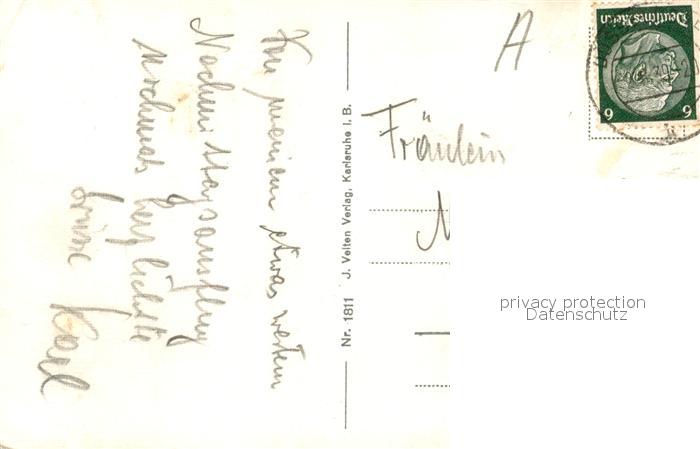 Von meinem etwas weitem
Nachmittagsausflug
nochmals herzlichste
Grüße Karl
Nr. 1811 J. Velten Verlag, Karlsruhe i. B.
A
Fräulein
Deutsches Reich
6 6
privacy protection
Datenschutz